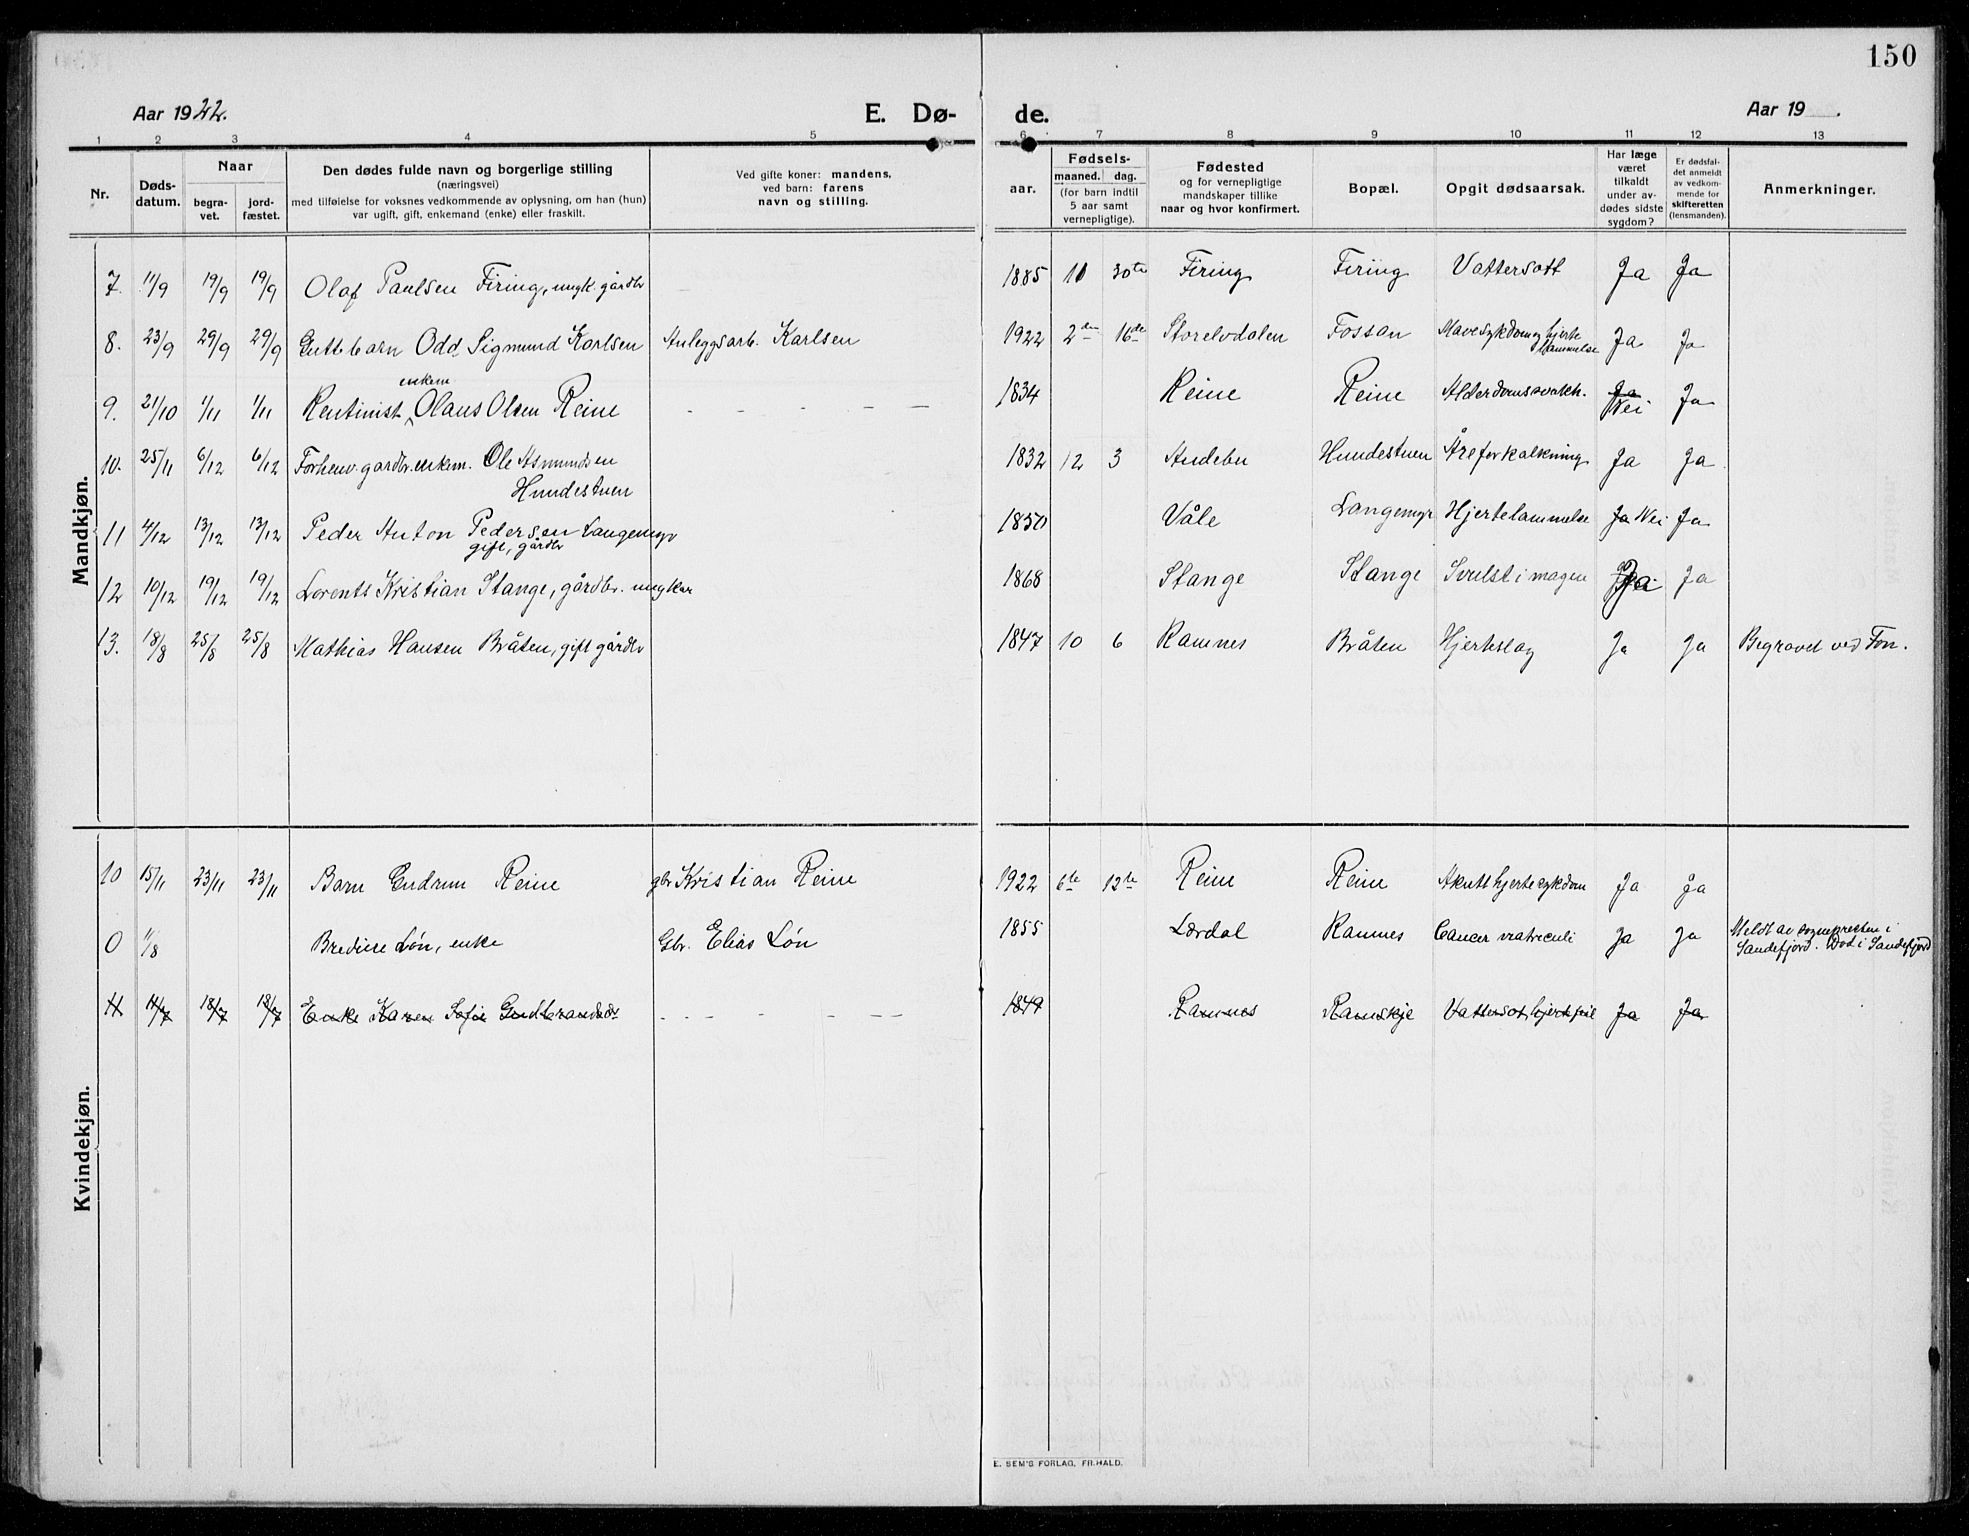 150
Aar 1922. E. Dø- de. Aar 19 .
1 2 3 4 5 6 7 8 9 10 11 12 13
Nr. Døds-datum. Naar begra-vet. jord-fæstet. Den dødes fulde navn og borgerlige stilling (næringsvei) med tilføielse for voksnes vedkommende av oplysning, om han (hun) var ugift, gift, enkemand (enke) eller fraskilt. Ved gifte koner: mandens, ved barn: farens navn og stilling. aar. Fødsels- maaned. dag. (for barn indtil 5 aar samt vernepligtige). Fødested og for vernepligtige mandskaper tillike naar og hvor konfirmert. Bopæl. Opgit dødsaarsak. Har læge været tilkaldt under av-dødes sidste sygdom? Er dødsfal-det anmeldt av vedkom-mende for skifteretten (lensmanden). Anmerkninger.
Mandkjøn.
7. 11/9 19/9 19/9 Olaf Paulsen Firing, ungk. gårdbr - 1885 11 30te Firing Firing Vattersott Ja Ja
8. 23/9 29/9 29/9 Guttebarn Odd Sigmund Karlsen Anleggsarb. Karlsen 1922 2den 16de Storelvdalen Fossan Mavesykdom og hjerte lammelse Ja Ja
enkem
9. 21/10 1/11 1/11 Rentinist Olaus Olsen Reine - - - - - 1834 Reine Reine Alderdomssvakh. Ja Nei Ja
10. 25/11 6/12 6/12 Forhenv. gardbr. enkem. Ole Asmundsen 1832 12 3 Andebu Hundestuen Åreforkalkning Ja Ja
Hundestuen
11 4/12 13/12 13/12 Peder Anton Pedersen Langemyr 1850 Våle Langemyr Hjertelammelse Ja Nei Ja
gift, gårdbr
12 10/12 19/12 19/12 Lorents Kristian Stange, gårdbr. ungkar 1868 Stange Stange Svulst i magen Ja Ja
13. 18/8 25/8 25/8 Mathias Hansen Bråten, gift gårdbr 1847 10 6 Ramnes Bråten Hjerteslag Ja Ja Begravet ved Fon.
Kvindekjøn.
10 15/11 23/11 23/11 Barn Gudrun Reine gbr Kristian Reine 1922 6te 12te Reine Reine Akutt hjertesykdom Ja Ja
0 11/8 Bredine Løn, enke Gbr. Elias Løn 1855 Lærdal Ramnes Cancer ventriculi Ja Ja Meldt av sognepresten i
Sandefjord. Død i Sandefjord
11 11/7 18/7 18/7 Enke Karen Sofie Gudbrandsdr - - - - - - - 1849 Ramnes Ramskje Vattersot, hjertefeil Ja Ja
E. SEM'S FORLAG, FR.HALD.